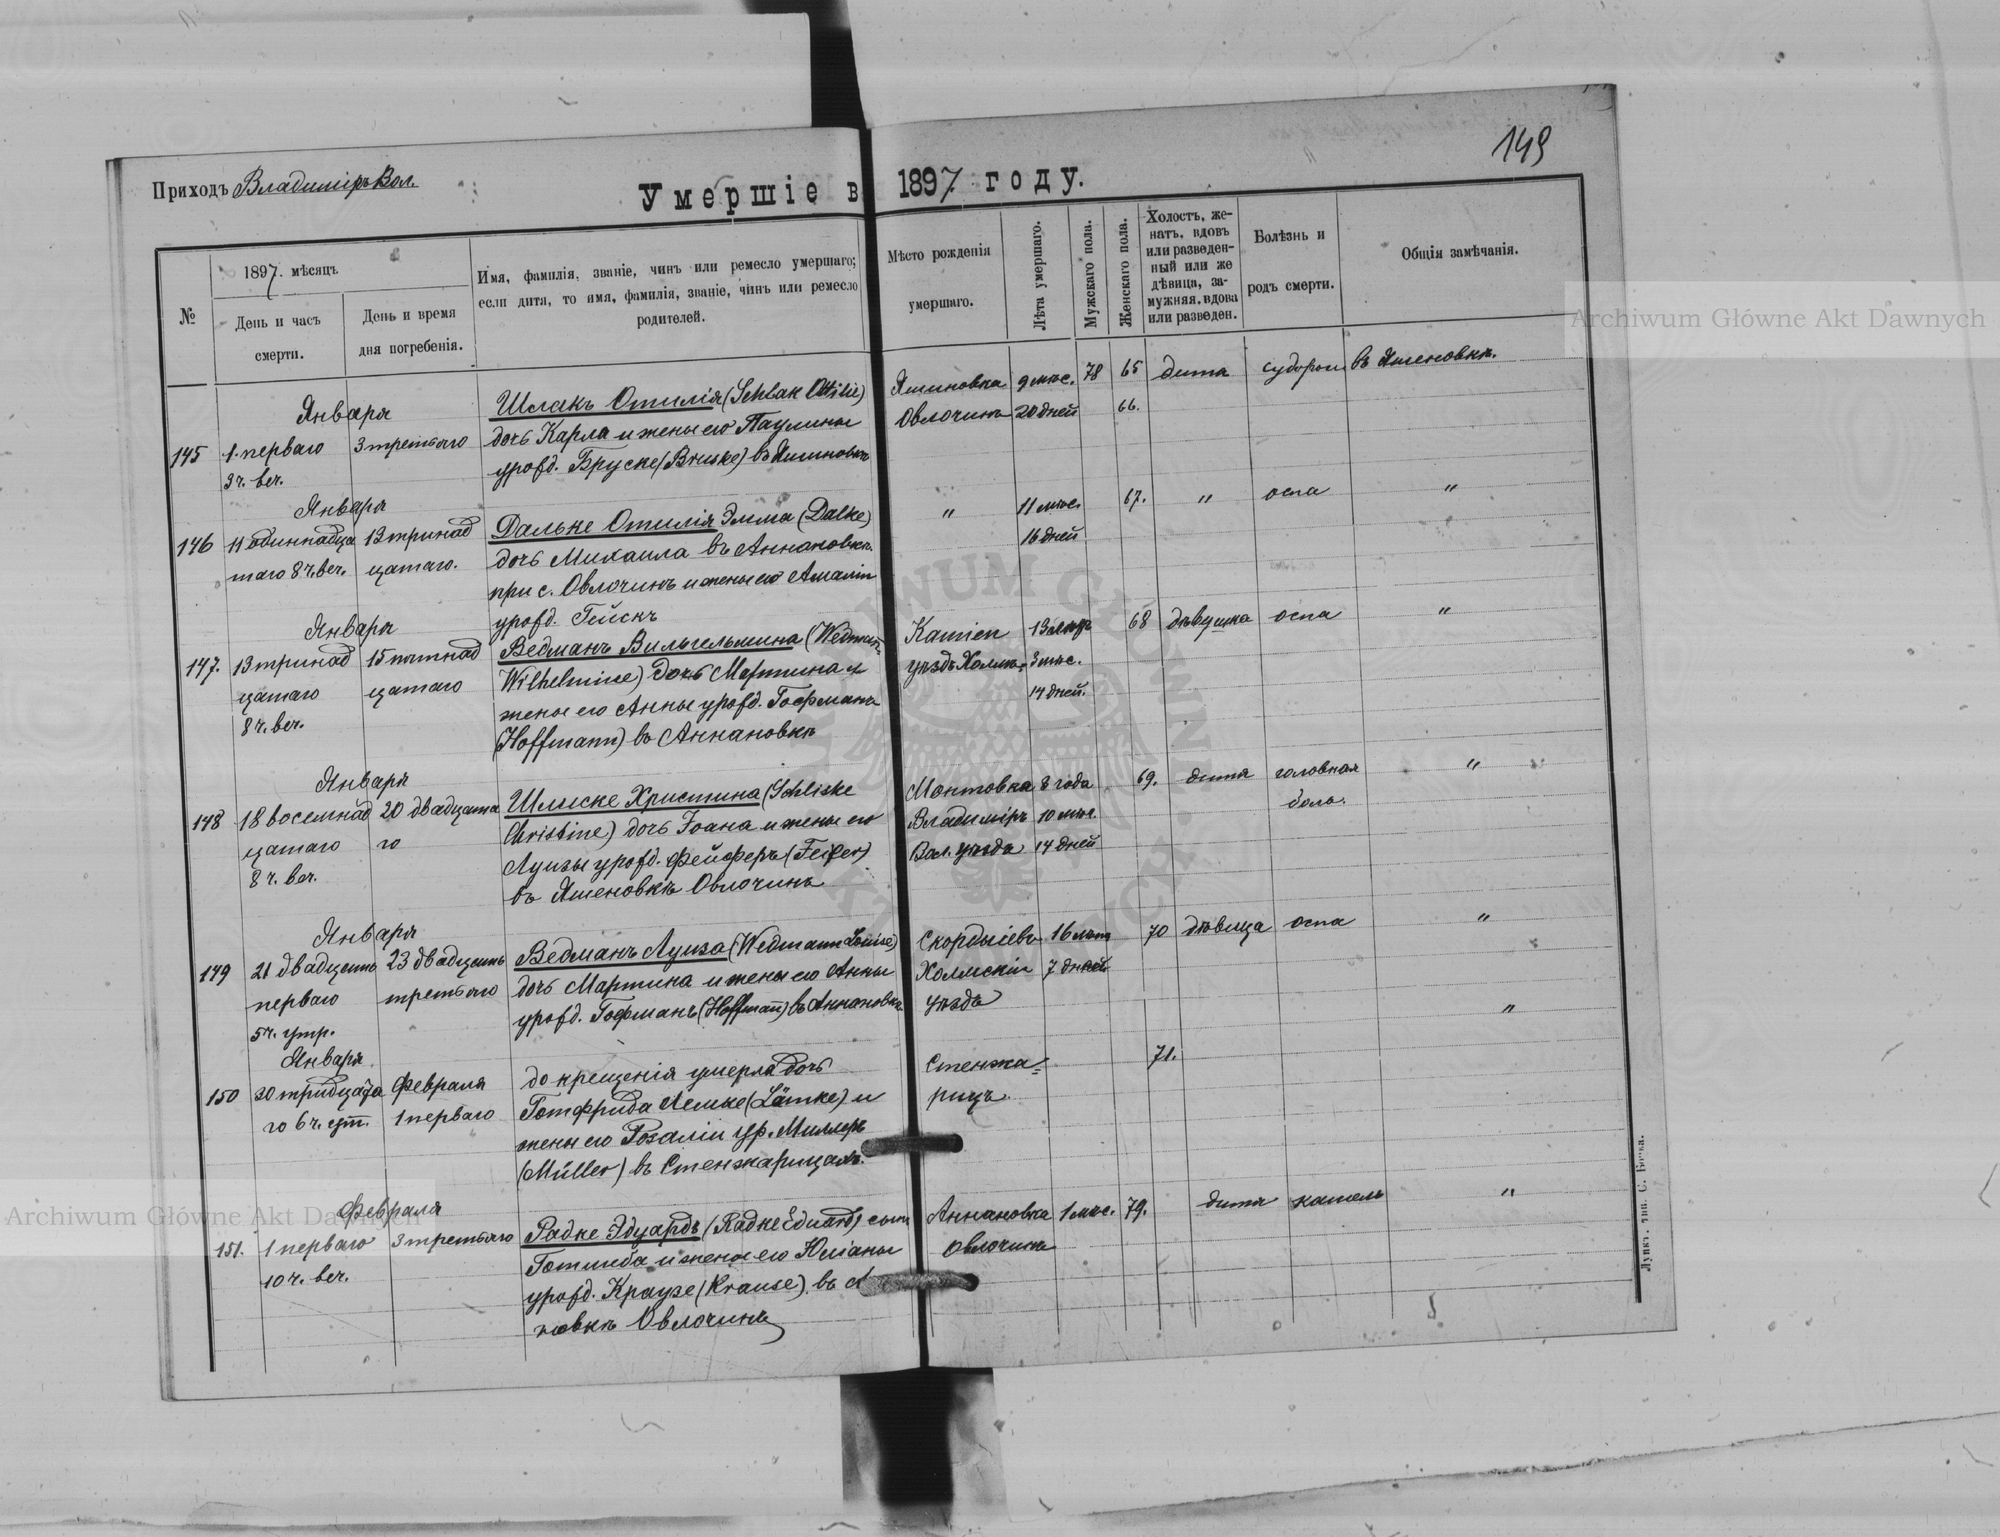 149
Приходъ Владимiръ Вол.
Умершіе в 1897 году.
№
1897. мѣсяцъ
День и часъ смерти.
День и время дня погребенія.
Имя, фамилія, званіе, чинъ или ремесло умершаго;
если дитя, то имя, фамилія, званіе, чинъ или ремесло
родителей.
Мѣсто рожденія
умершаго.
Лѣта умершаго.
Мужскаго пола.
Женскаго пола.
Холостъ, же-
натъ, вдовъ
или разведен-
ный или же
дѣвица, за-
мужняя, вдова
или разведен.
Болѣзнь и
родъ смерти.
Общія замѣчанія.
Января
145 1 перваго 3 третьяго
3 ч. веч.
Шлакъ Отилія (Schlak Ottilie)
дочь Карла и жены его Паулины
урожд. Бруске (Bruske) въ Яшиновкѣ
Яшиновка 9 мѣс. 78 65 дитя судороги въ Яшеновкѣ.
Овлочинъ 20 дней 66.
Января
146 11 одиннадца 13 тринад
таго 8 ч. веч. цатаго.
Дальке Отилія Эмма (Dalke)
дочь Михаила въ Аннановкѣ
при с. Овлочинъ и жены его Амаліи
урожд. Гейскъ
" 11 мѣс. 67. " оспа "
16 дней
Января
147. 13 тринад 15 пятнад
цатаго цатаго
8 ч. веч.
Ведманъ Вильгельмина (Wedman
Wilhelmine) дочь Мартина и
жены его Анны урожд. Гофманъ
(Hoffmann) въ Аннановкѣ
Kamien 13 лѣтъ 68 дѣвушка оспа "
уѣздъ Холмъ. 3 мѣс.
14 дней.
Января
148 18 восемнад 20 двадцата
цатаго го
8 ч. веч.
Шлиске Христина (Schliske
Christine) дочь Іоана и жены его
Луизы урожд. Фейферъ (Feifer)
въ Яшеновкѣ Овлочинъ
Монтовка 3 года 69. дитя головная "
Владимiръ 10 мѣс. боль.
Вол. уѣзда 14 дней
Января
149 21 двадцать 23 двадцать
перваго третьяго
5 ч. утр.
Ведманъ Луиза (Wedmann Louise)
дочь Мартина и жены его Анны
урожд. Гофманъ (Hoffmañ) въ Аннановкѣ
Скордыiевъ 16 лѣтъ 70 дѣвица оспа "
Холмскiй 7 дней
уѣздъ
Января
150 30 тридцата Февраля
го 6 ч. ут. 1 перваго
до крещенія умерла дочь
Готфрида Лемке (Lämke) и
жены его Розаліи ур. Миллеръ
(Müller) въ Стенжарицахъ.
Стенжа- 71. "
рицъ
Февраля
151. 1 перваго 3 третьяго
10 ч. веч.
Радке Эдуардъ (Radke Eduard) сынъ
Готлиба и жены его Юліаны
урожд. Краузе (Krause) въ А
новкѣ Овлочинъ
Аннановка 1 мѣс. 79. дитя кашель "
Овлочинъ
Archiwum Główne Akt Dawnych
Archiwum Główne Akt Dawnych